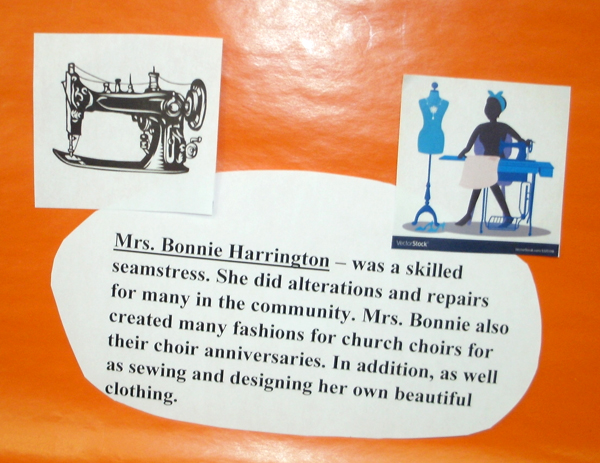 VectorStock
Mrs. Bonnie Harrington – was a skilled
seamstress. She did alterations and repairs
for many in the community. Mrs. Bonnie also
created many fashions for church choirs for
their choir anniversaries. In addition, as well
as sewing and designing her own beautiful
clothing.